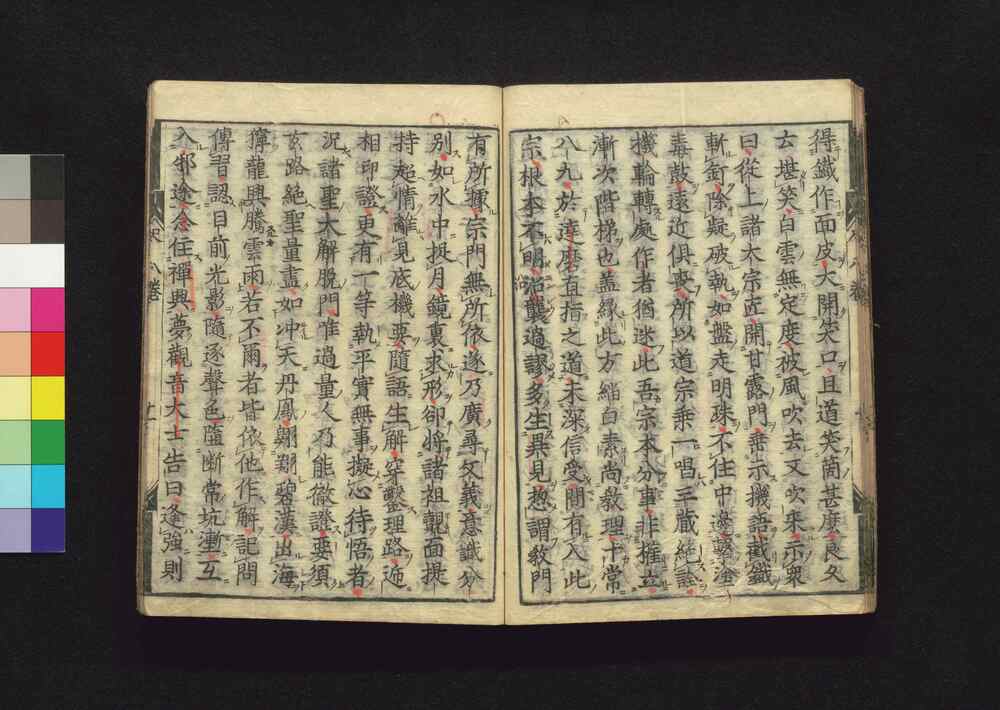 得鐵作面皮大開笑口且道笑箇甚麼良久
云堪笑白雲無定度被風吹去又吹來示衆
曰從上諸大宗匠開甘露門垂示機語截鐵
斬釘除疑破執如盤走明珠不住中邊
毒鼓遠近俱喪所以道宗乘一唱三藏絶詮
機輪轉處作者猶迷此吾宗本分事非權立
漸次階梯也蓋緣此方緇白素尚敎理十常
八九於達磨直指之道未深信受間有入此
宗根本不明沿襲過謬多生異見怱謂敎門
有所據宗門無所依遂乃廣尋文義意識分
別如水中捉月鏡裏求形卻將諸祖覿面提
持超情離見底機要隨語生解穿鑿理路迊
相印證更有一等執平實無事擬心待悟者
況諸聖大解脫門唯過量人乃能徹證要須
玄路絶聖量盡如冲天丹鳳翺翔碧漢出海
獰龍興騰雲雨若不爾者皆依他作解記問
傳習認目前光影隨逐聲色墮斷常坑漸互
入邪途念住禪興夢觀音大士告曰逢強則